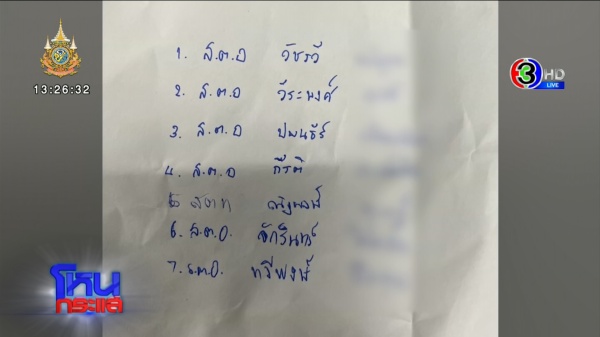 3 HD
LIVE
13:26:32
1. ส.ต.อ วัชรวี
2. ส.ต.อ วีระพงศ์
3. ส.ต.อ
4. ส.ต.อ กีรติ
5 ส.ต.ท
6. ส.ต.อ. จักรินทร์
7. ร.ต.อ. ทวีพงษ์
โหนกระแส